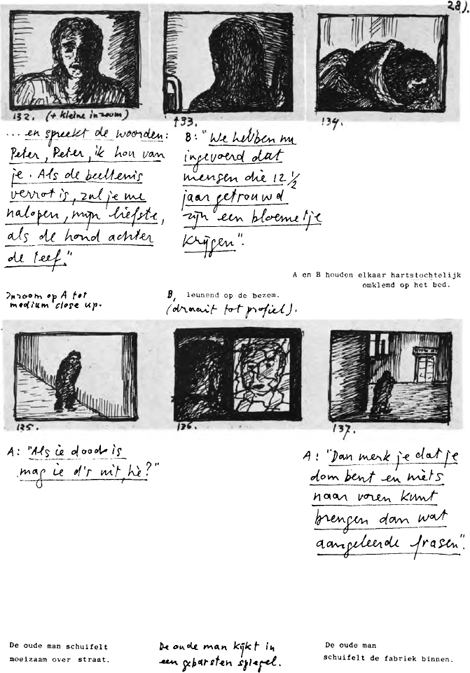 28).
132. (+ kleine inzoom)
133.
134.
... en spreekt de woorden:
Peter, Peter, ik hou van
je. Als de beeltenis
verrot is, zul je me
nalopen, mijn liefste,
als de hond achter
de teef."
B: "We hebben nu
ingevoerd dat
mensen die 12 1/2
jaar getrouwd
zijn een bloemetje
krijgen".
A en B houden elkaar hartstochtelijk
omklemd op het bed.
Inzoom op A tot
medium close up.
B, leunend op de bezem.
(draait tot profiel).
135.
136.
137.
A: "Als ie dood is
mag ie d'r uit, hè?"
A: "Dan merk je dat je
dom bent en niets
naar voren kunt
brengen dan wat
aangeleerde frasen".
De oude man schuifelt
moeizaam over straat.
De oude man kijkt in
een gebarsten spiegel.
De oude man
schuifelt de fabriek binnen.